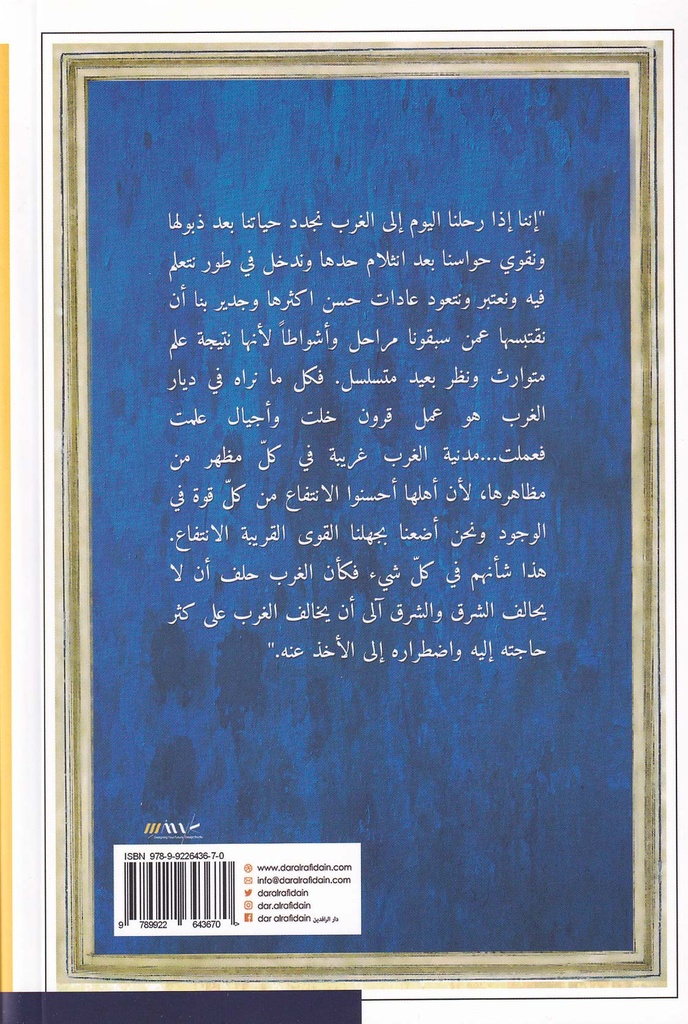 "إننا إذا رحلنا اليوم إلى الغرب نجدد حياتنا بعد ذبولها
ونقوي حواسنا بعد انثلام حدها وندخل في طور نتعلم
فيه ونعتبر ونتعود عادات حسن اكثرها وجدير بنا أن
نقتبسها عمن سبقونا مراحل وأشواطاً لأنها نتيجة علم
متوارث ونظر بعيد متسلسل. فكل ما نراه في ديار
الغرب هو عمل قرون خلت وأجيال علمت
فعملت...مدنية الغرب غريبة في كلّ مظهر من
مظاهرها، لأن أهلها أحسنوا الانتفاع من كلّ قوة في
الوجود ونحن أضعنا بجهلنا القوى القريبة الانتفاع.
هذا شأنهم في كلّ شيء فكأن الغرب حلف أن لا
يحالف الشرق والشرق آلى أن يخالف الغرب على كثر
حاجته إليه واضطراره إلى الأخذ عنه."
ISBN 978-9-9226436-7-0
9 789922 643670 >
www.daralrafidain.com
info@daralrafidain.com
daralrafidain
dar.alrafidain
dar alrafidain دار الرافدين